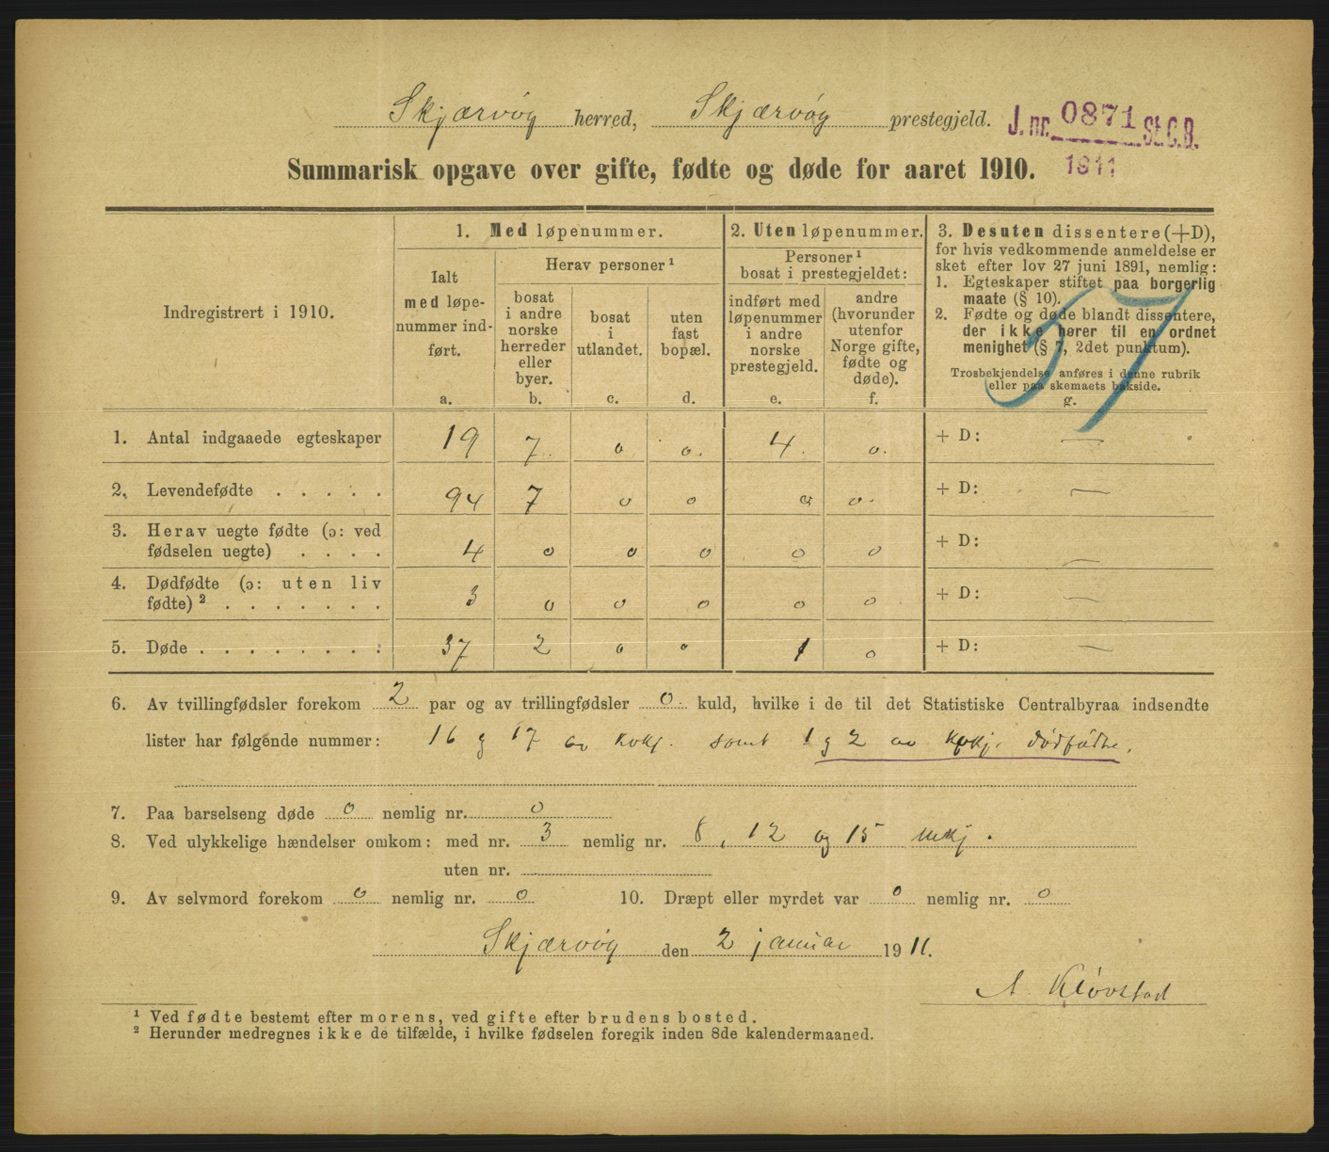 Skjærvög herred, Skjærvög prestegjeld. J. nr. 0871 St. C. B.
1911
Summarisk opgave over gifte, fødte og døde for aaret 1910.
57
Indregistrert i 1910.
1. Med løpenummer.
Ialt
med løpe-
nummer ind-
ført.
a.
Herav personer ¹
bosat
i andre
norske
herreder
eller
byer.
b.
bosat
i
utlandet.
c.
uten
fast
bopæl.
d.
2. Uten løpenummer.
Personer ¹
bosat i prestegjeldet:
indført med
løpenummer
i andre
norske
prestegjeld.
e.
andre
(hvorunder
utenfor
Norge gifte,
fødte og
døde).
f.
3. Desuten dissentere (+D),
for hvis vedkommende anmeldelse er
sket efter lov 27 juni 1891, nemlig:
1. Egteskaper stiftet paa borgerlig
maate (§ 10).
2. Fødte og døde blandt dissentere,
der ikke hører til en ordnet
menighet (§ 7, 2det punktum).
Trosbekjendelse anføres i denne rubrik
eller paa skemaets bakside.
g.
1. Antal indgaaede egteskaper 19 7. 0 0. 4. 0. + D: —
2. Levendefødte . . . . . 94 7 0 0 0 0. + D: —
3. Herav uegte fødte (ɔ: ved
fødselen uegte) . . . . 4 0 0 0 0 0 + D: —
4. Dødfødte (ɔ: uten liv
fødte) ² . . . . . . . 3 0 0 0 0 0 + D: —
5. Døde . . . . . . . . 37 2 0 0 1 0 + D: —
6. Av tvillingfødsler forekom 2 par og av trillingfødsler 0 kuld, hvilke i de til det Statistiske Centralbyraa indsendte
lister har følgende nummer: 16 g 17 av kvkj. samt 1 g 2 av kvkj. dödfødte.
7. Paa barselseng døde 0 nemlig nr. 0
8. Ved ulykkelige hændelser omkom: med nr. 3 nemlig nr. 8, 12 og 15 mkj.
uten nr.
9. Av selvmord forekom 0 nemlig nr. 0 10. Dræpt eller myrdet var 0 nemlig nr. 0
Skjærvög den 2 januar 1911.
A. Klövstad
¹ Ved fødte bestemt efter morens, ved gifte efter brudens bosted.
² Herunder medregnes ikke de tilfælde, i hvilke fødselen foregik inden 8de kalendermaaned.